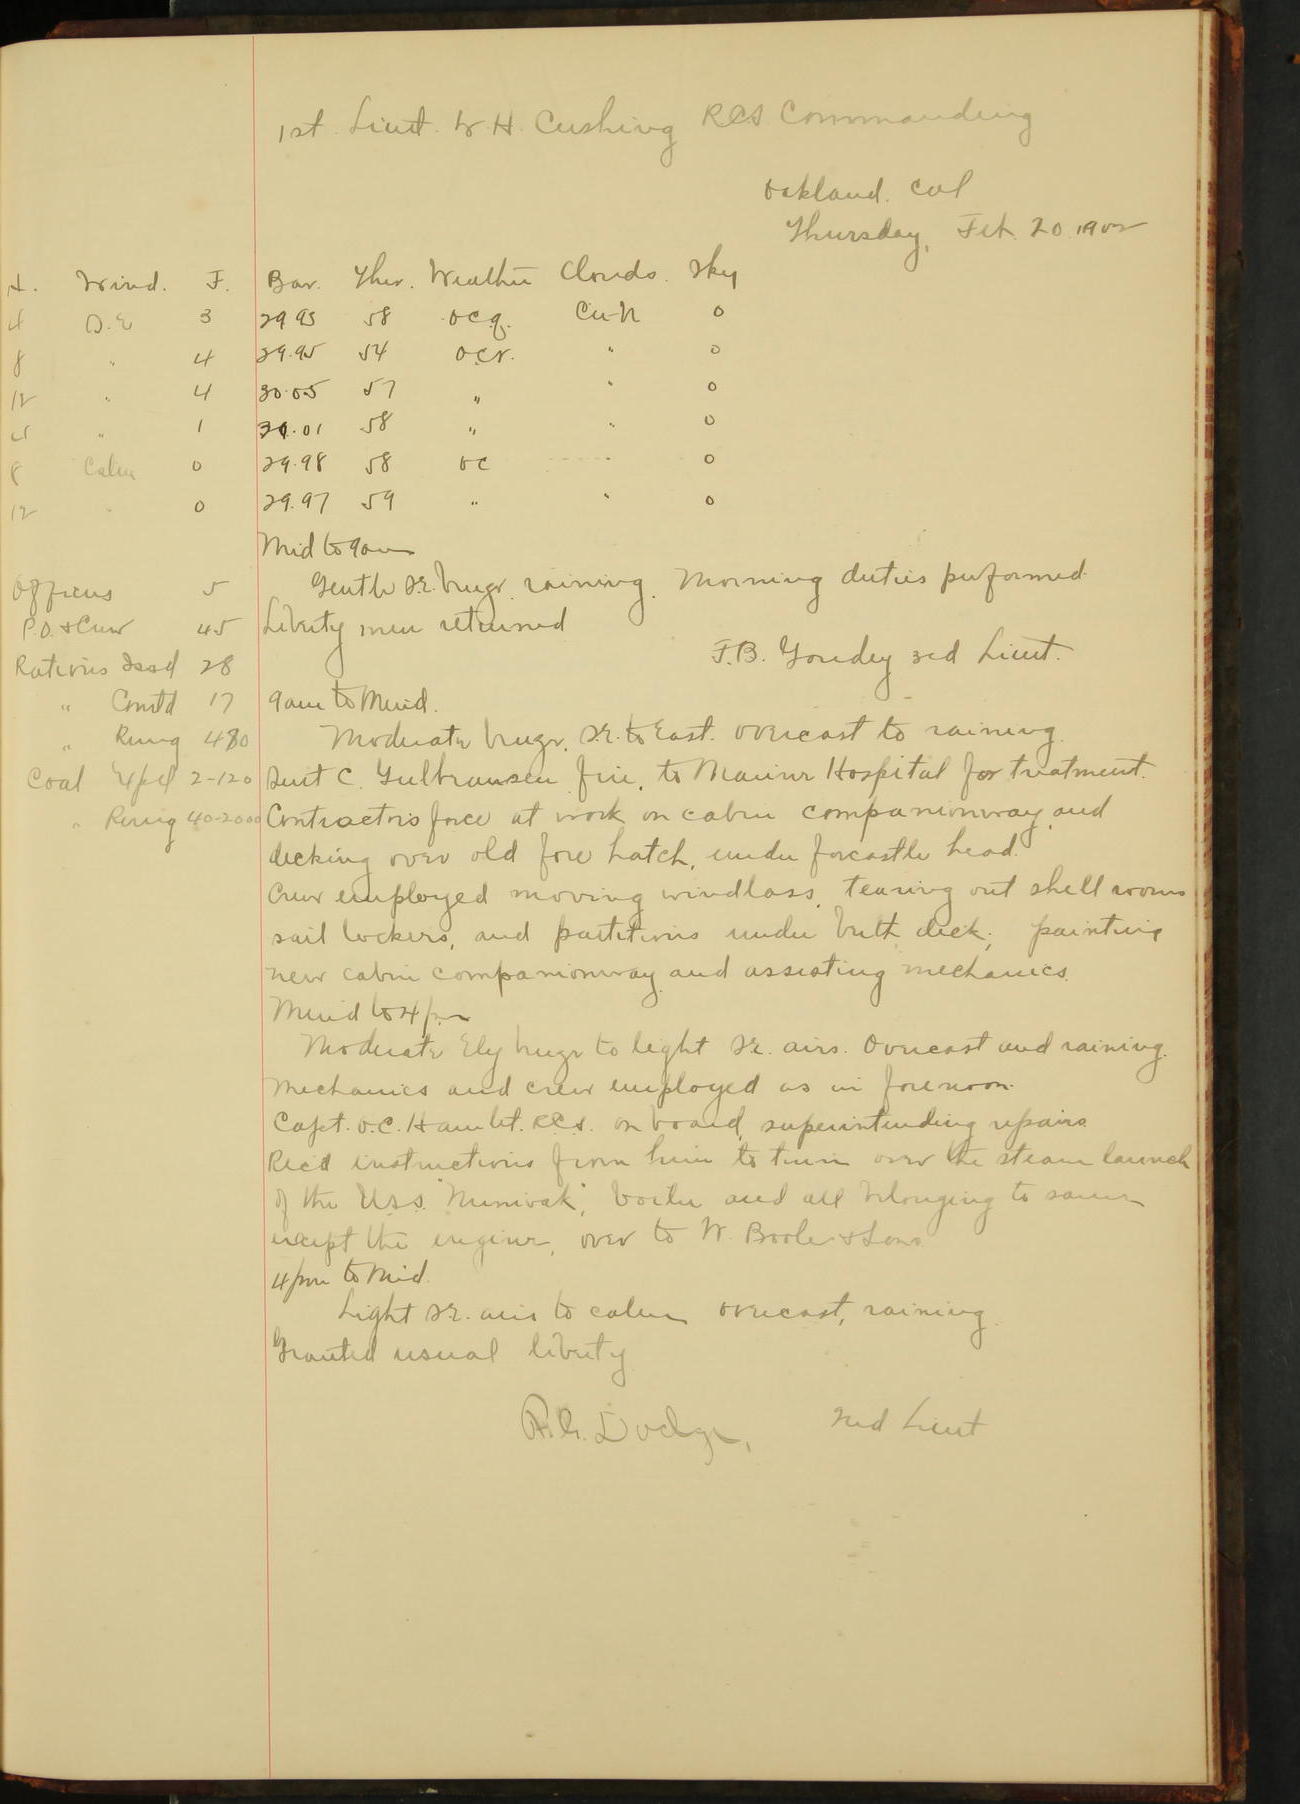 1st. Lieut. W. H. Cushing RCS Commanding
Oakland. Cal
Thursday, Feb. 20. 1902
H. Wind. F. Bar. Ther. Weather Clouds. Sky
4 S.E 3 29.93 58 ocq. Cu-N 0
8 " 4 29.95 54 ocr. " 0
12 " 4 30.05 57 " " 0
4 " 1 30.01 58 " " 0
8 Calm 0 29.98 58 oc " 0
12 " 0 29.97 59 " " 0
Mid to 9am
Gentle S.E. breeze. raining. Morning duties performed.
Liberty men returned
F.B. Goudey 3rd Lieut.
Officers 5
P.O. & Crew 45
Rations Issd 28
" Comtd 17
" Rmng 480
Coal Expd 2-120
" Rmng 40-2000
9am to Merid.
Moderate breeze. S.E. to East. overcast to raining.
Sent C. Gulbransen fire. to Marine Hospital for treatment.
Contractors force at work on cabin companionway and
decking over old fore hatch, under forcastle head.
Crew employed moving windlass, tearing out shell rooms
sail lockers, and partitions under berth deck; painting
new cabin companionway and assisting mechanics.
Merid to 4 pm
Moderate Ely breeze to light S.E. airs. Overcast and raining.
Mechanics and crew employed as in forenoon.
Capt. O.C. Hamlet. RCS. on board, superintending repairs.
Rec'd instructions from him to turn over the steam launch
of the U.S.S. "Nunivak", boiler and all belonging to same
except the engine, over to W. Boole & Sons
4pm to Mid.
Light S.E. airs to calm overcast, raining.
Granted usual liberty
Dodge, 2nd Lieut